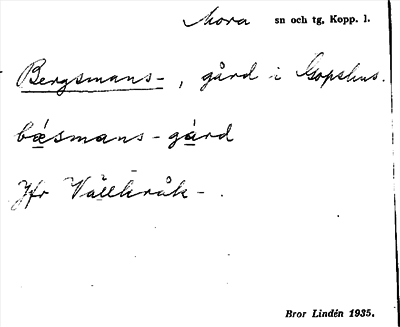 Mora sn och tg, Kopp. l.
Bergsmans-, gård i Gopshus.
bǽsmans-gård
Jfr Vållkråk-.
Bror Lindén 1935.